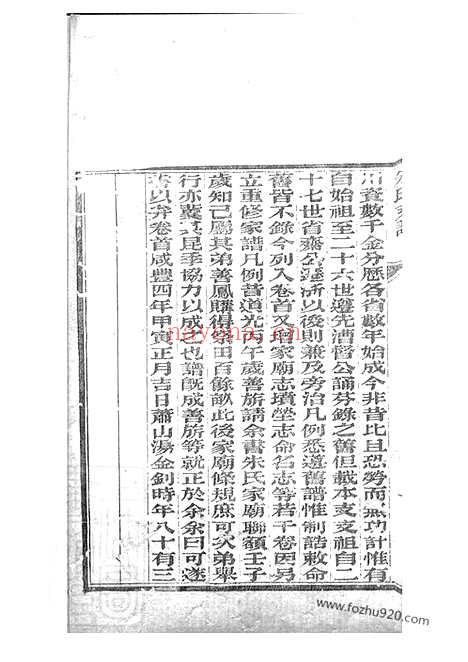 川資數千金分歷各省數年始成今非昔比且恐勞而無功計惟有
自始祖至二十六世遵先漕督公誦芬錄之舊但載本支支祖自二
十七世省齋公遷浙以後則兼及旁治凡例悉遵舊譜惟制誥敕命
舊皆不錄今列入卷首又增家廟志墳塋志命名志等若干卷因另
立重修家譜凡例昔道光壬午歲善旂請余書朱氏家廟聯額壬子
歲知已屬其弟善鳳購得田百餘畝此後家廟條規庶可次弟舉
行亦冀其昆季協力以成之也譜既成善旂等就正於余余曰可遂
書以弁卷首咸豐四年甲寅正月吉日蕭山湯金釗時年八十有三
nayona.cn
www.fozhu920.com